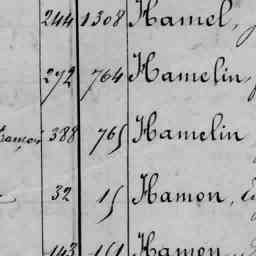 244 1308 Hamel,
272 764 Hamelin,
388 765 Hamelin
32 15 Hamon,
143 151 Hamon